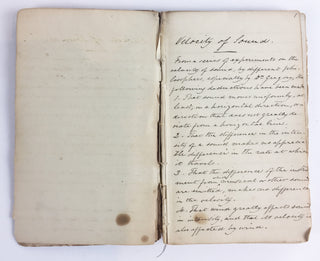 Velocity of Sound.
From a series of experiments on the
velocity of sound, by different phi-
losophers, especially by Dr Gregory, the
following deductions have been made.
1. That sound moves uniformly, at
least, in a horizontal direction, or a
direction that does not greatly de-
viate from a horizontal line.
2. That the difference in the inten-
sity of a sound makes no apprecia-
ble difference in the rate at which
it travels.
3. That the difference of the instru-
ment from whence sound
are emitted, makes no difference
in the velocity.
4. That wind greatly affects sound
in intensity, and that its velocity is
also affected by wind.